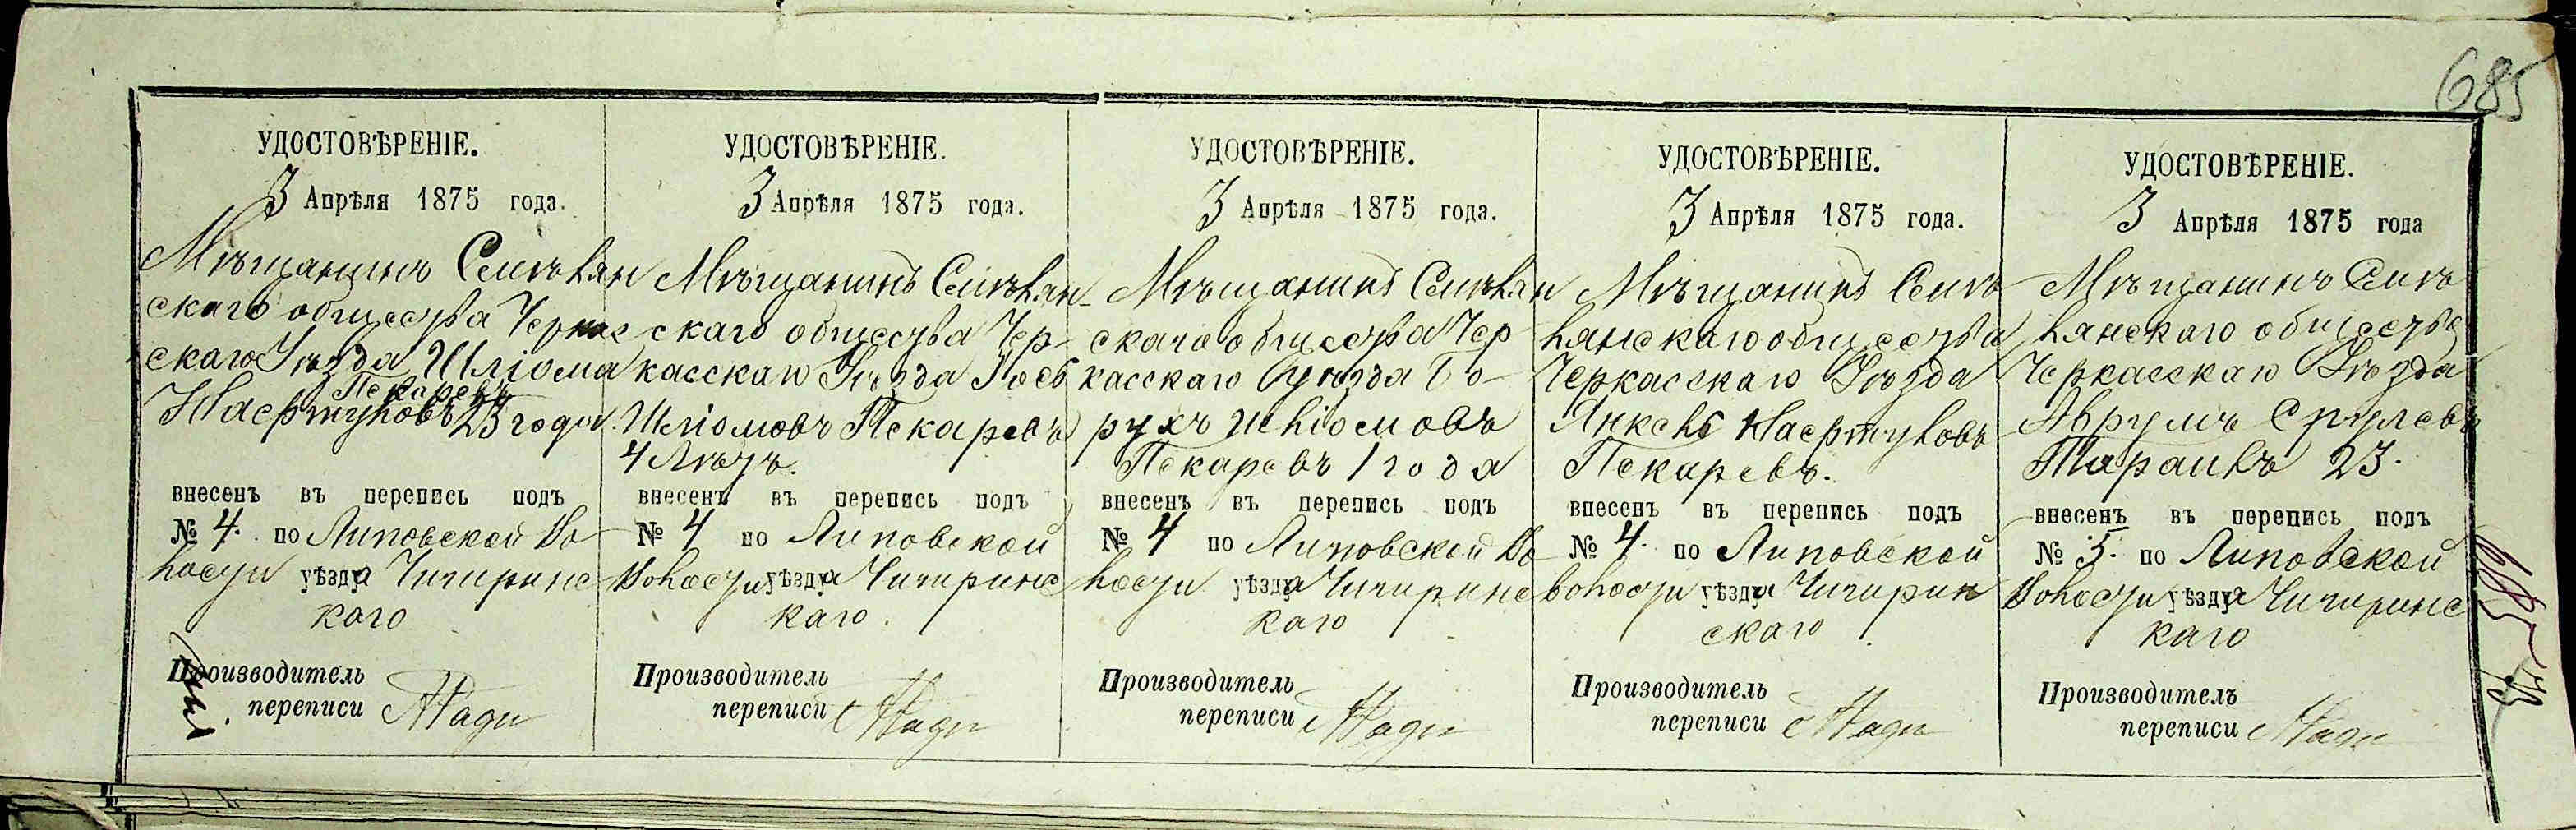 685
УДОСТОВѢРЕНІЕ.
3 Апрѣля 1875 года.
Мѣщанинъ Смѣлян
скаго общества Черкас
скаго Уѣзда Шліома
Пекаревъ
23 года.
внесенъ въ перепись подъ
№ 4. по Липовской Во
лости уѣзда Чигиринс
каго
Производитель
переписи
УДОСТОВѢРЕНІЕ.
3 Апрѣля 1875 года.
Мѣщанинъ Смѣлян-
скаго общества Чер-
касскаго Уѣзда Іось
Шліомовъ Пекаревъ
4 Лѣтъ.
внесенъ въ перепись подъ
№ 4 по Липовской
Волости уѣзда Чигиринс
каго.
Производитель
переписи
УДОСТОВѢРЕНІЕ.
3 Апрѣля 1875 года.
Мѣщанинъ Смѣлян
скаго общества Чер
касскаго Суѣзда Бо-
рухъ Шліомовъ
Пекаревъ 1 года
внесенъ въ перепись подъ
№ 4 по Липовской Во
лости уѣзда Чигиринс
каго
Производитель
переписи
УДОСТОВѢРЕНІЕ.
3 Апрѣля 1875 года.
Мѣщанинъ Смѣ
лянскаго общества
Черкасскаго Уѣзда
Янкель
Пекаревъ.
внесенъ въ перепись подъ
№ 4. по Липовской
волости уѣзда Чигирин
скаго
Производитель
переписи
УДОСТОВѢРЕНІЕ.
3 Апрѣля 1875 года
Мѣщанинъ Смѣ
лянскаго общества
Черкасскаго Уѣзда
Аврумъ Срулевъ
23.
внесенъ въ перепись подъ
№ 5. по Липовской
Волости уѣзда Чигиринс
каго
Производитель
переписи